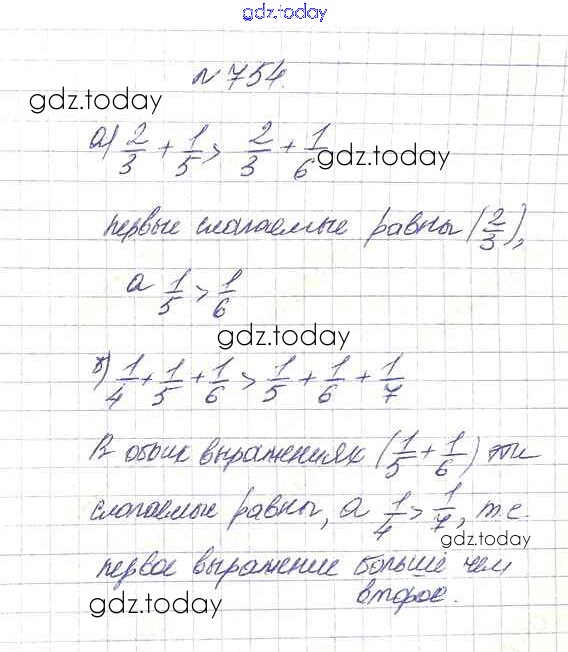 gdz.today
№754.
gdz.today
а) 2/3 + 1/5 > 2/3 + 1/6
gdz.today
первые слагаемые равны (2/3),
а 1/5 > 1/6
gdz.today
б) 1/4 + 1/5 + 1/6 > 1/5 + 1/6 + 1/7
В обоих выражениях (1/5 + 1/6) эти
слагаемые равны, а 1/4 > 1/7, т.е.
gdz.today
первое выражение больше чем
второе.
gdz.today